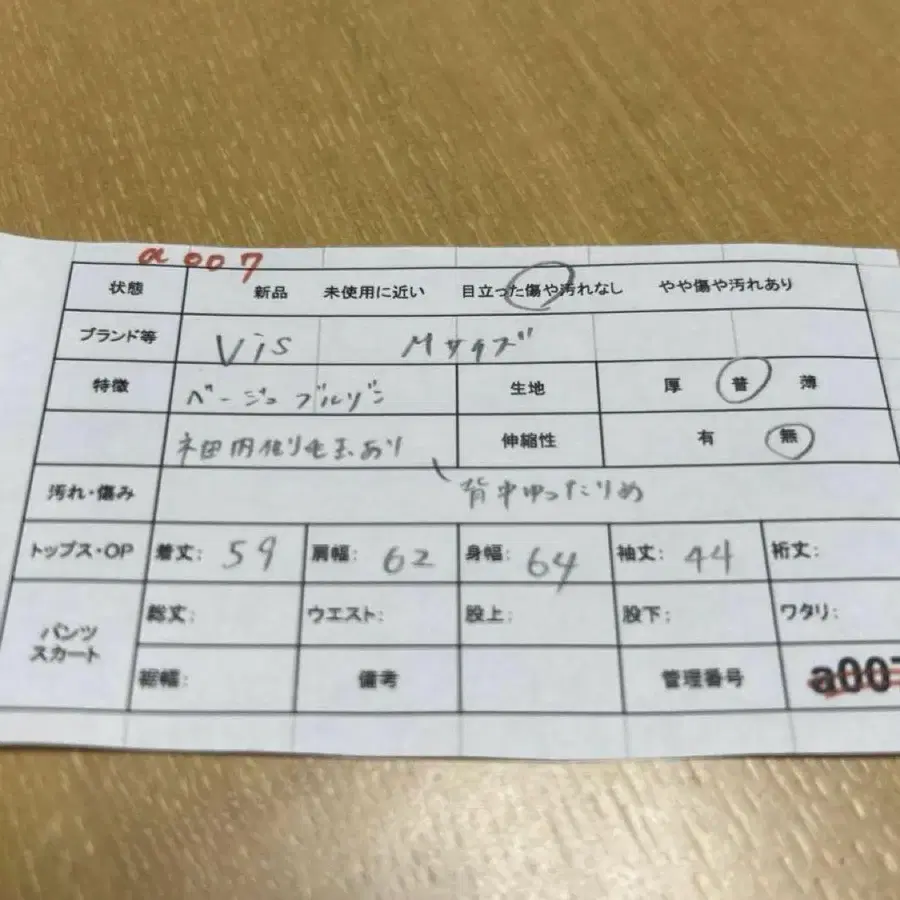 a007
状態 新品 未使用に近い 目立った傷や汚れなし やや傷や汚れあり
ブランド等 Vis Mサイズ
特徴 ベージュ ブルゾン 生地 厚 普 薄
毛玉あり 伸縮性 有 無
汚れ・傷み 背中ゆったりめ
トップス・OP 着丈: 59 肩幅: 62 身幅: 64 袖丈: 44 裄丈:
パンツ 総丈: ウエスト: 股上: 股下: ワタリ:
スカート
裾幅: 備考 管理番号 a007